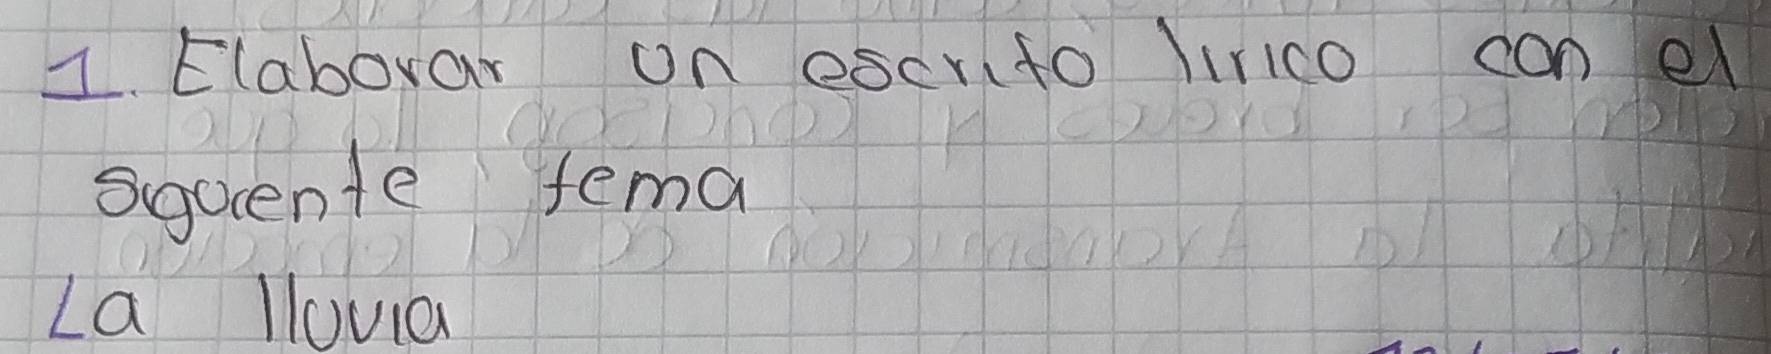 1. Elaborar un escrito lirico con el
siguiente tema
La lluvia